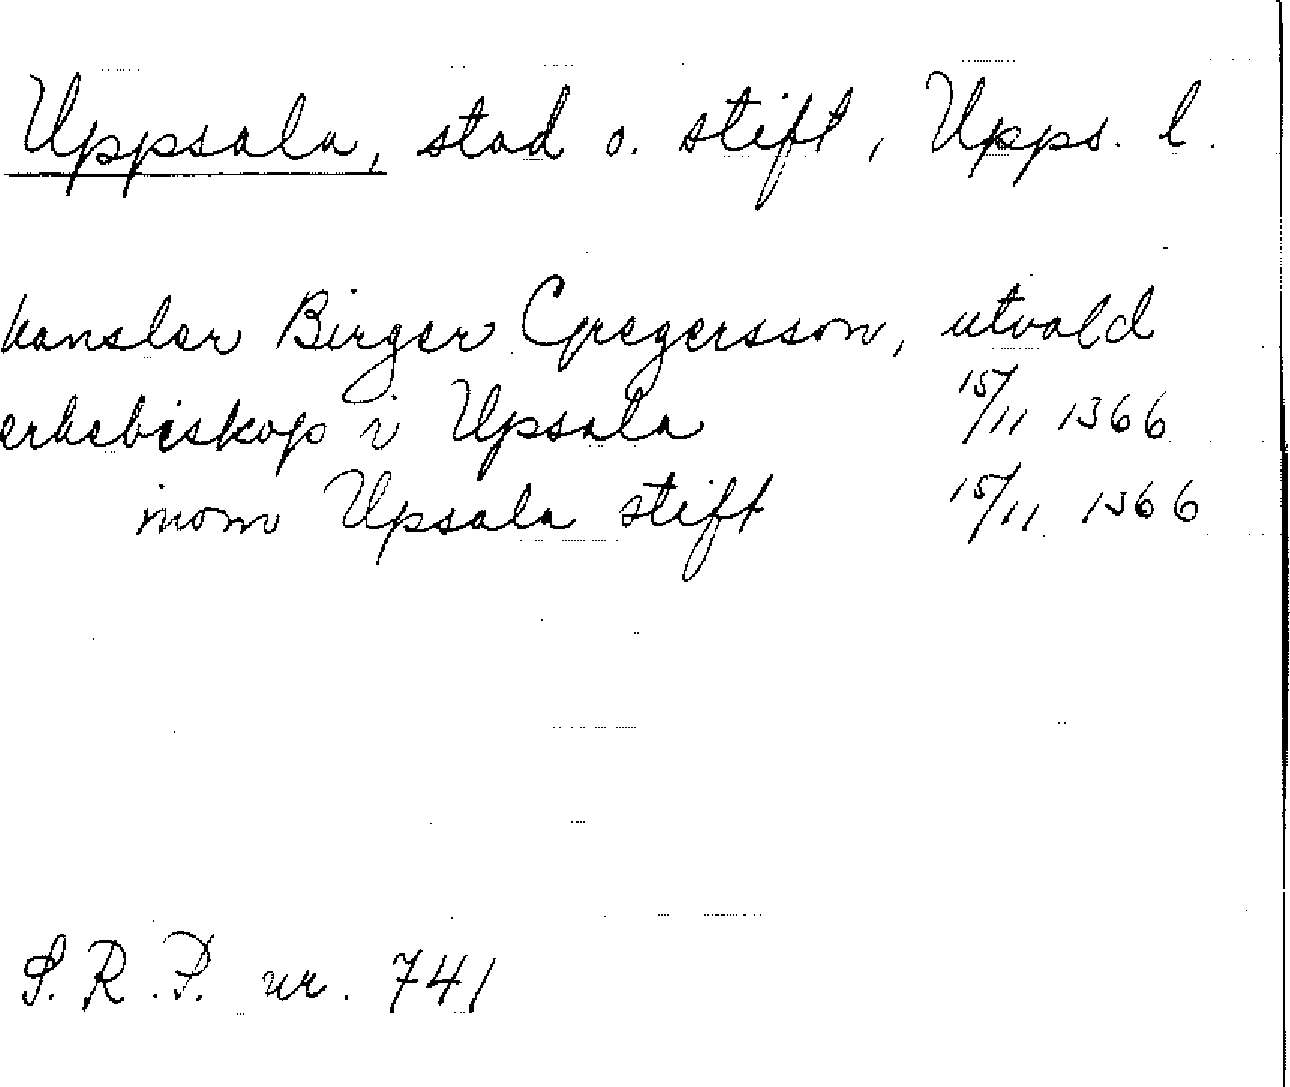 Uppsala, stad o. stift, Upps. l.
kansler Birger Gregersson, utvald
erkebiskop i Upsala 15/11 1366
inom Upsala stift 15/11 1366
S.R.P. nr. 741